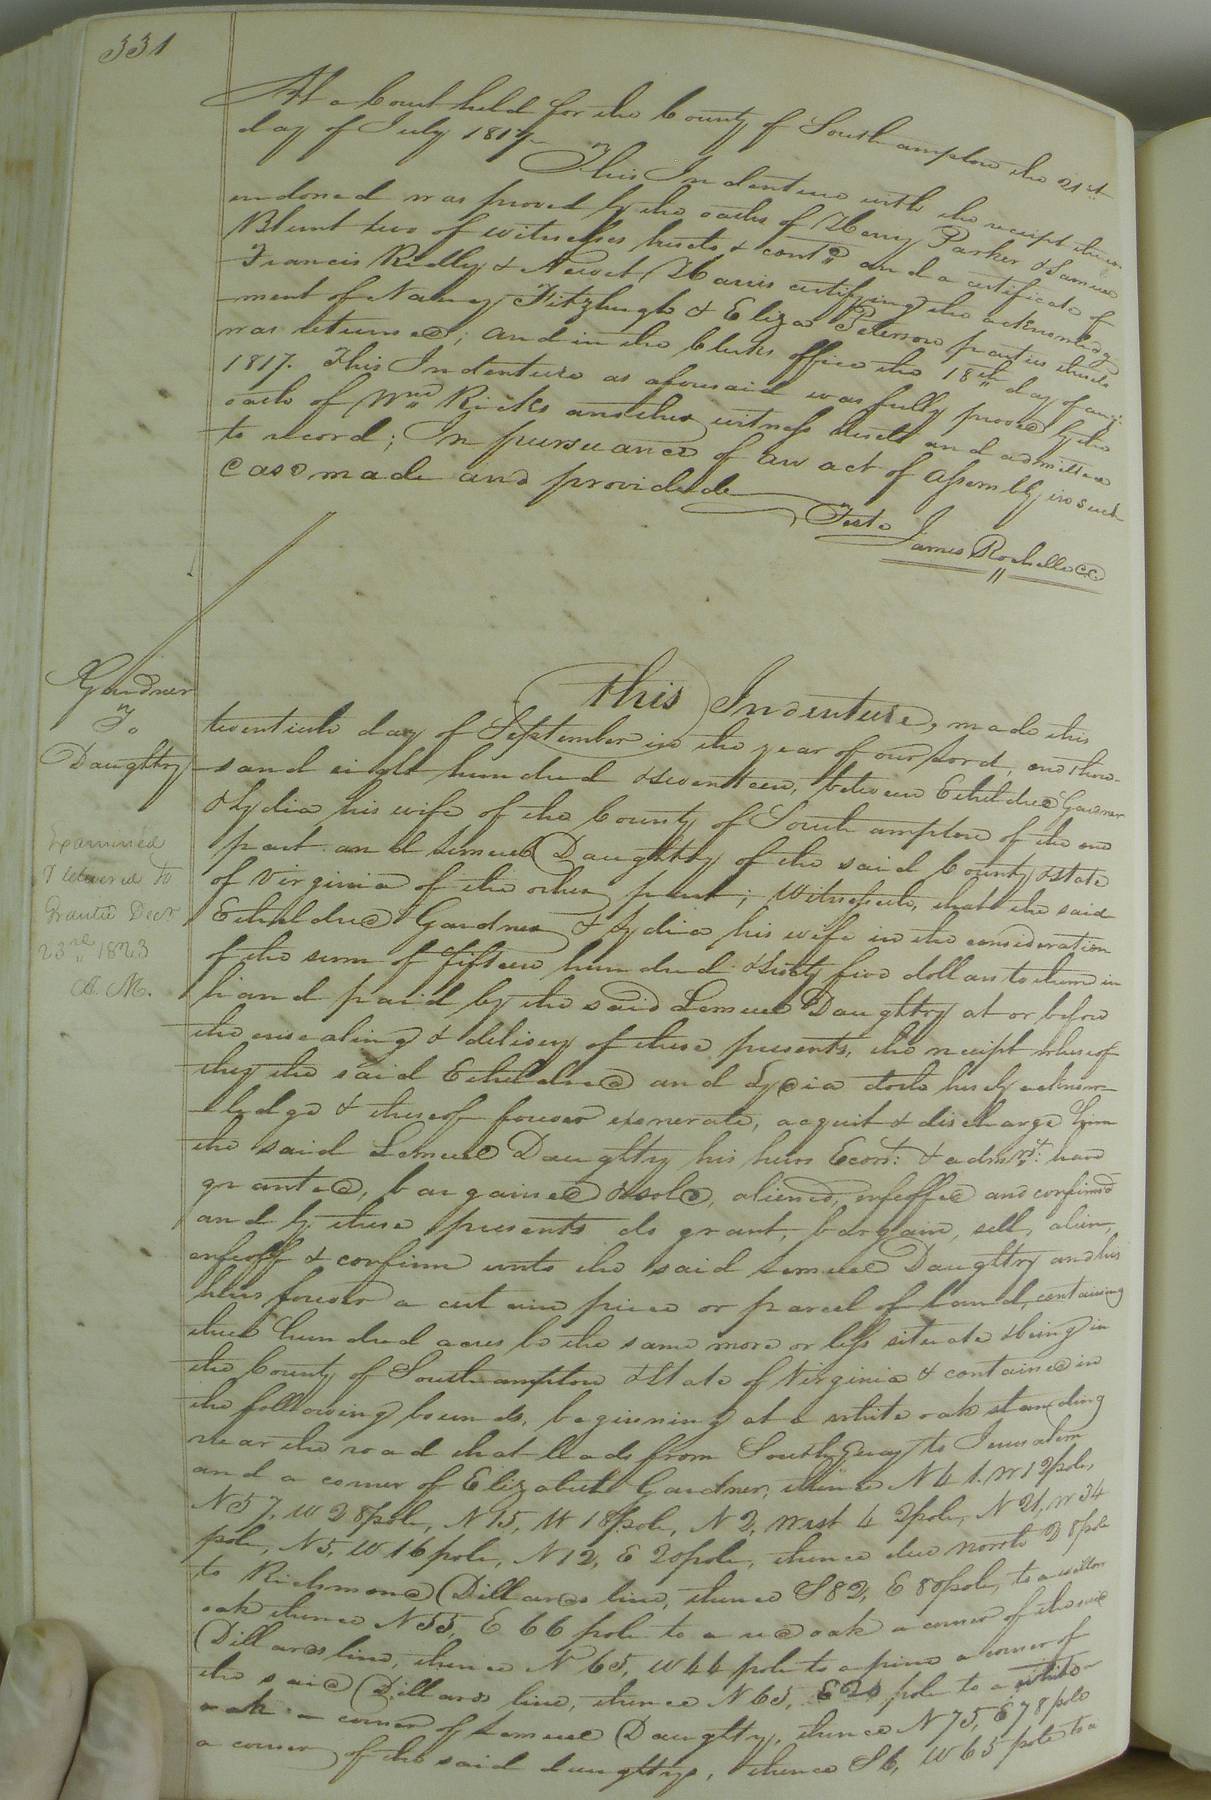 331
At a Court held for the County of Southampton the 21st
day of July 1817
This Indenture with the receipt thereon
endorsed was proved by the oaths of Henry Parker & Samuel
Blunt two of witnesses hereto & contd. and a certificate of
Francis Ridley & Newit Harris certifying the acknowledg
-ment of Nancy Fitzhugh & Eliza Peterson parties thereto
was returned; and in the Clerks office the 18th day of augt.
1817. This Indenture as aforesaid was fully proved by the
oath of Wm. Ricks another witness hereto and admitted
to record; In pursuance of an act of assembly in such
case made and provided
Teste
James Rochelle CC
Gardner
To
Daughtry
Examined
& delivered to
Grantee Decr.
23rd 1823
A. M.
This Indenture, made this
twentieth day of September in the year of our Lord, one thou-
sand eight hundred & seventeen, between Etheldred Gardner
& Lydia his wife of the County of Southampton of the one
part and Lemuel Daughtry of the said County & State
of Virginia of the other part; Witnesseth, that the said
Etheldred Gardner & Lydia his wife in the consideration
of the sum of fifteen hundred & sixty five dollars to them in
hand paid by the said Lemuel Daughtry at or before
the ensealing & delivery of these presents, the receipt whereof
they the said Etheldred and Lydia doth hereby acknow-
-ledge & thereof forever exonerate, acquit & discharge him
the said Lemuel Daughtry his heirs Ecors: & admrs: have
granted, bargained & sold, aliened, enfeoffed and confirmed
and by these presents do grant, bargain, sell, alien,
enfeoff & confirm unto the said Lemuel Daughtry and his
heirs forever a certain piece or parcel of land, containing
three hundred acres be the same more or less situate & being in
the County of Southampton & State of Virginia & contained in
the following bounds, beginning at a white oak standing
near the road that leads from South Quay to Jerusalem
and a corner of Elizabeth Gardner, thence N 41. W 12 pole,
N 57, W 28 pole, N 15, W 18 pole, N 2, West 42 pole, N 21, W 34
pole, N 5, W 16 pole, N 12, E 20 pole, thence due north 28 pole
to Richmond Dillards line, thence S 82, E 80 pole, to a willow
oak thence N 55, E 66 pole to a red oak a corner of the said
Dillards line, thence N 65, W 44 pole to a pine a corner of
the said Dillards line, thence N 65, E 20 pole to a white
oak a corner of Lemuel Daughtry, thence N 75, E 78 pole
a corner of the said daughtrys, thence S 6, W 65 pole to a